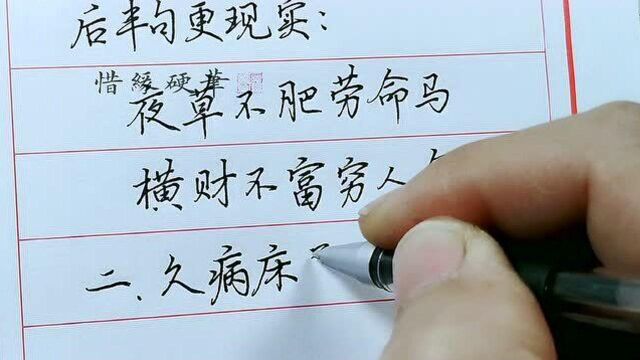 后半句更现实:
惜緣硬筆
夜草不肥劳命马
横财不富穷人
二、久病床